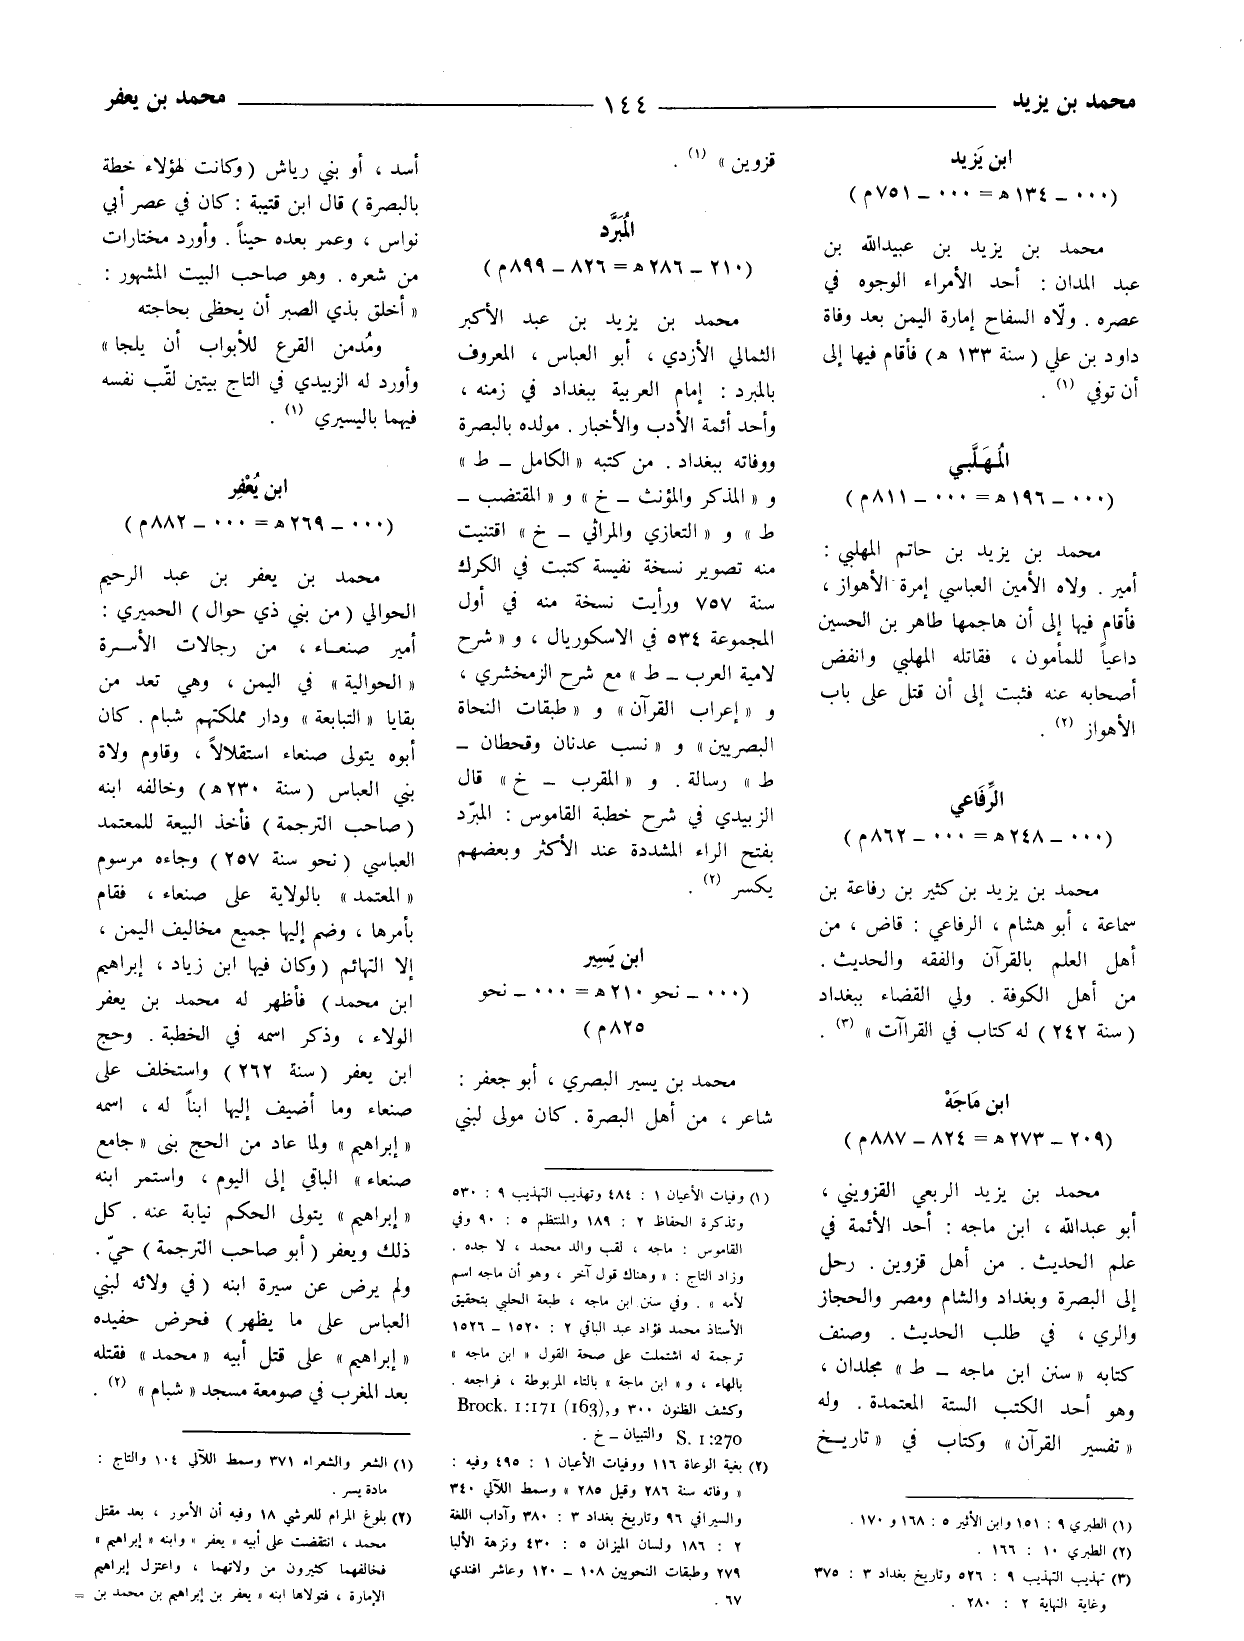 محمد بن يزيد ١٤٤ محمد بن يعفر
ابن يَزيد
(٠٠٠ ــ ١٣٤ هـ = ٠٠٠ ــ ٧٥١م)
محمد بن يزيد بن عبيدالله بن
عبد المدان : أحد الأمراء الوجوه في
عصره . ولّاه السفاح إمارة اليمن بعد وفاة
داود بن علي ( سنة ١٣٣ هـ ) فأقام فيها إلى
أن توفي (١) .
المُهَلَّبي
(٠٠٠ ــ ١٩٦ هـ = ٠٠٠ ــ ٨١١م)
محمد بن يزيد بن حاتم المهلبي :
أمير . ولاه الأمين العباسي إمرة الأهواز ،
فأقام فيها إلى أن هاجمها طاهر بن الحسين
داعياً للمأمون ، فقاتله المهلبي وانفض
أصحابه عنه فثبت إلى أن قتل على باب
الأهواز (٢) .
الرِّفَاعي
(٠٠٠ ــ ٢٤٨ هـ = ٠٠٠ ــ ٨٦٢م)
محمد بن يزيد بن كثير بن رفاعة بن
سماعة ، أبو هشام ، الرفاعي : قاض ، من
أهل العلم بالقرآن والفقه والحديث .
من أهل الكوفة . ولي القضاء ببغداد
( سنة ٢٤٢ ) له كتاب في القراآت » (٣) .
ابن مَاجَهْ
(٢٠٩ ــ ٢٧٣ هـ = ٨٢٤ ــ ٨٨٧م)
محمد بن يزيد الربعي القزويني ،
أبو عبدالله ، ابن ماجه : أحد الأئمة في
علم الحديث . من أهل قزوين . رحل
إلى البصرة وبغداد والشام ومصر والحجاز
والري ، في طلب الحديث . وصنف
كتابه « سنن ابن ماجه ــ ط » مجلدان ،
وهو أحد الكتب الستة المعتمدة . وله
« تفسير القرآن » وكتاب في « تاريخ
(١) الطبري ٩ : ١٥١ وابن الأثير ٥ : ١٦٨ و ١٧٠ .
(٢) الطبري ١٠ : ١٦٦ .
(٣) تهذيب التهذيب ٩ : ٥٢٦ وتاريخ بغداد ٣ : ٣٧٥
وغاية النهاية ٢ : ٢٨٠ .
قزوين » (١) .
المُبَرَّد
(٢١٠ ــ ٢٨٦ هـ = ٨٢٦ ــ ٨٩٩م)
محمد بن يزيد بن عبد الأكبر
الثمالي الأزدي ، أبو العباس ، المعروف
بالمبرد : إمام العربية ببغداد في زمنه ،
وأحد أئمة الأدب والأخبار . مولده بالبصرة
ووفاته ببغداد . من كتبه « الكامل ــ ط »
و « المذكر والمؤنث ــ خ » و « المقتضب ــ
ط » و « التعازي والمراثي ــ خ » اقتنيت
منه تصوير نسخة نفيسة كتبت في الكرك
سنة ٧٥٧ ورأيت نسخة منه في أول
المجموعة ٥٣٤ في الاسكوريال ، و « شرح
لامية العرب ــ ط » مع شرح الزمخشري ،
و « إعراب القرآن » و « طبقات النحاة
البصريين » و « نسب عدنان وقحطان ــ
ط » رسالة . و « المقرب ــ خ » قال
الزبيدي في شرح خطبة القاموس : المبرّد
بفتح الراء المشددة عند الأكثر وبعضهم
يكسر (٢) .
ابن يَسِير
(٠٠٠ ــ نحو ٢١٠ هـ = ٠٠٠ ــ نحو
٨٢٥م)
محمد بن يسير البصري ، أبو جعفر :
شاعر ، من أهل البصرة . كان مولى لبني
(١) وفيات الأعيان ١ : ٤٨٤ وتهذيب التهذيب ٩ : ٥٣٠
وتذكرة الحفاظ ٢ : ١٨٩ والمنتظم ٥ : ٩٠ وفي
القاموس : ماجه ، لقب والد محمد ، لا جده .
وزاد التاج : « وهناك قول آخر ، وهو أن ماجه اسم
لأمه » . وفي سنن ابن ماجه ، طبعة الحلبي بتحقيق
الأستاذ محمد فؤاد عبد الباقي ٢ : ١٥٢٠ ــ ١٥٢٦
ترجمة له اشتملت على صحة القول « ابن ماجه »
بالهاء ، و « ابن ماجة » بالتاء المربوطة ، فراجعه .
وكشف الظنون ٣٠٠ و Brock. 1:171 (163),
S. 1:270 والتبيان ــ خ .
(٢) بغية الوعاة ١١٦ ووفيات الأعيان ١ : ٤٩٥ وفيه :
« وفاته سنة ٢٨٦ وقيل ٢٨٥ » وسمط اللآلي ٣٤٠
والسيرافي ٩٦ وتاريخ بغداد ٣ : ٣٨٠ وآداب اللغة
٢ : ١٨٦ ولسان الميزان ٥ : ٤٣٠ ونزهة الألبا
٢٧٩ وطبقات النحويين ١٠٨ ــ ١٢٠ وعاشر افندي
٦٧ .
أسد ، أو بني رياش ( وكانت لهؤلاء خطة
بالبصرة ) قال ابن قتيبة : كان في عصر أبي
نواس ، وعمر بعده حيناً . وأورد مختارات
من شعره . وهو صاحب البيت المشهور :
« أخلق بذي الصبر أن يحظى بحاجته
ومُدمن القرع للأبواب أن يلجا »
وأورد له الزبيدي في التاج بيتين لقّب نفسه
فيهما باليسيري (١) .
ابن يُعْفِر
(٠٠٠ ــ ٢٦٩ هـ = ٠٠٠ ــ ٨٨٢م)
محمد بن يعفر بن عبد الرحيم
الحوالي ( من بني ذي حوال ) الحميري :
أمير صنعاء ، من رجالات الأسرة
« الحوالية » في اليمن ، وهي تعد من
بقايا « التبابعة » ودار مملكتهم شبام . كان
أبوه يتولى صنعاء استقلالاً ، وقاوم ولاة
بني العباس ( سنة ٢٣٠ هـ ) وخالفه ابنه
( صاحب الترجمة ) فأخذ البيعة للمعتمد
العباسي ( نحو سنة ٢٥٧ ) وجاءه مرسوم
« المعتمد » بالولاية على صنعاء ، فقام
بأمرها ، وضم إليها جميع مخاليف اليمن ،
إلا التهائم ( وكان فيها ابن زياد ، إبراهيم
ابن محمد ) فأظهر له محمد بن يعفر
الولاء ، وذكر اسمه في الخطبة . وحج
ابن يعفر ( سنة ٢٦٢ ) واستخلف على
صنعاء وما أضيف إليها ابناً له ، اسمه
« إبراهيم » ولما عاد من الحج بنى « جامع
صنعاء » الباقي إلى اليوم ، واستمر ابنه
« إبراهيم » يتولى الحكم نيابة عنه . كل
ذلك ويعفر ( أبو صاحب الترجمة ) حيّ .
ولم يرض عن سيرة ابنه ( في ولائه لبني
العباس على ما يظهر ) فحرض حفيده
« إبراهيم » على قتل أبيه « محمد » فقتله
بعد المغرب في صومعة مسجد « شبام » (٢) .
(١) الشعر والشعراء ٣٧١ وسمط اللآلي ١٠٤ والتاج :
مادة يسر .
(٢) بلوغ المرام للعرشي ١٨ وفيه أن الأمور ، بعد مقتل
محمد ، انتقضت على أبيه « يعفر » وابنه « إبراهيم »
فخالفهما كثيرون من ولاتهما ، واعتزل إبراهيم
الإمارة ، فتولاها ابنه « يعفر بن إبراهيم بن محمد بن =